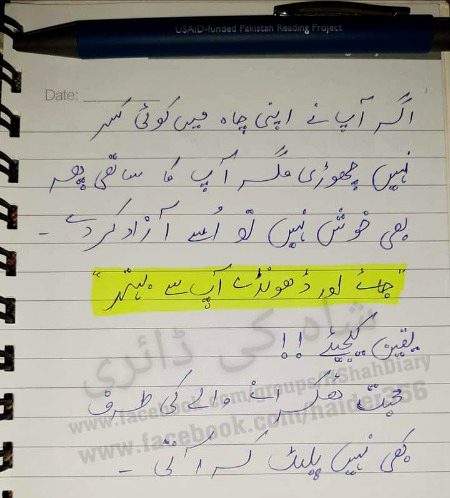 USAID-funded Pakistan Reading Project
Date:
اگر آپ نے اپنی چاہ میں کوئی کسر
نہیں چھوڑی مگر آپ کا ساتھی پھر
بھی خوش نہیں تو اُسے آزاد کر دے ۔
"جائے اور ڈھونڈے آپ سے بہتر"
شاہ کی ڈائری
یقین کیجیئے !!
www.facebook.com/groups/HShahDiary
محبت ٹھکرانے والے کی طرف
www.facebook.com/haider356
کبھی نہیں پلٹ کر آتی ۔